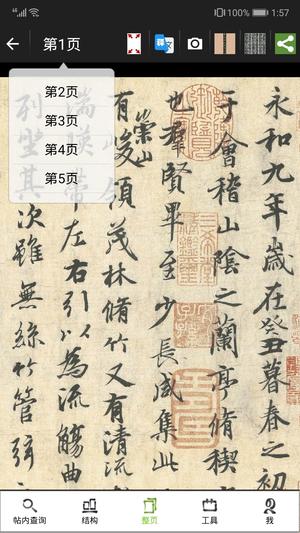 1:57
第1页
第2页
第3页
第4页
第5页
永和九年歲在癸丑暮春之初
于會稽山陰之蘭亭脩稧
也羣賢畢至少長咸集此
有崇山峻領茂林脩竹又有清流
湍暎帶左右引以為流觴曲
列坐其次雖無絲竹管弦
帖内查询
结构
整页
工具
我